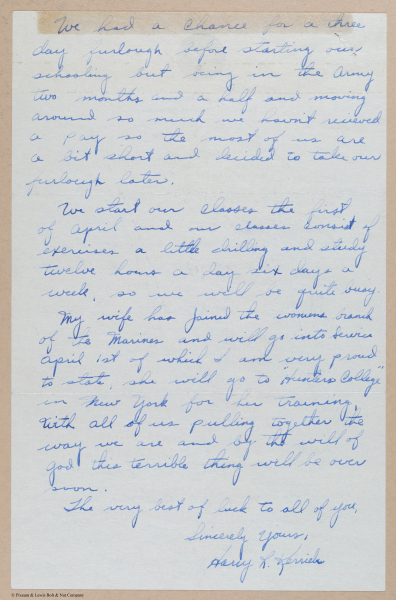 We had a chance for a three
day furlough before starting our
schooling but being in the Army
two months and a half and moving
around so much we havn't recieved
a pay so the most of us are
a bit short and decided to take our
furlough later.
We start our classes the first
of April and our classes consist of
exercises a little drilling and study
twelve hours a day six days a
week, so we will be quite busy.
My wife has joined the womens branch
of the Marines and will go into Service
April 1st of which I am very proud
to state, she will go to "Hunters College"
in New York for her training.
With all of us pulling together the
way we are and by the will of
god this terrible thing will be over
soon.
The very best of luck to all of you,
Sincerely Yours,
Harry R.
© Fiorani & Lewis Bob & Nat Company